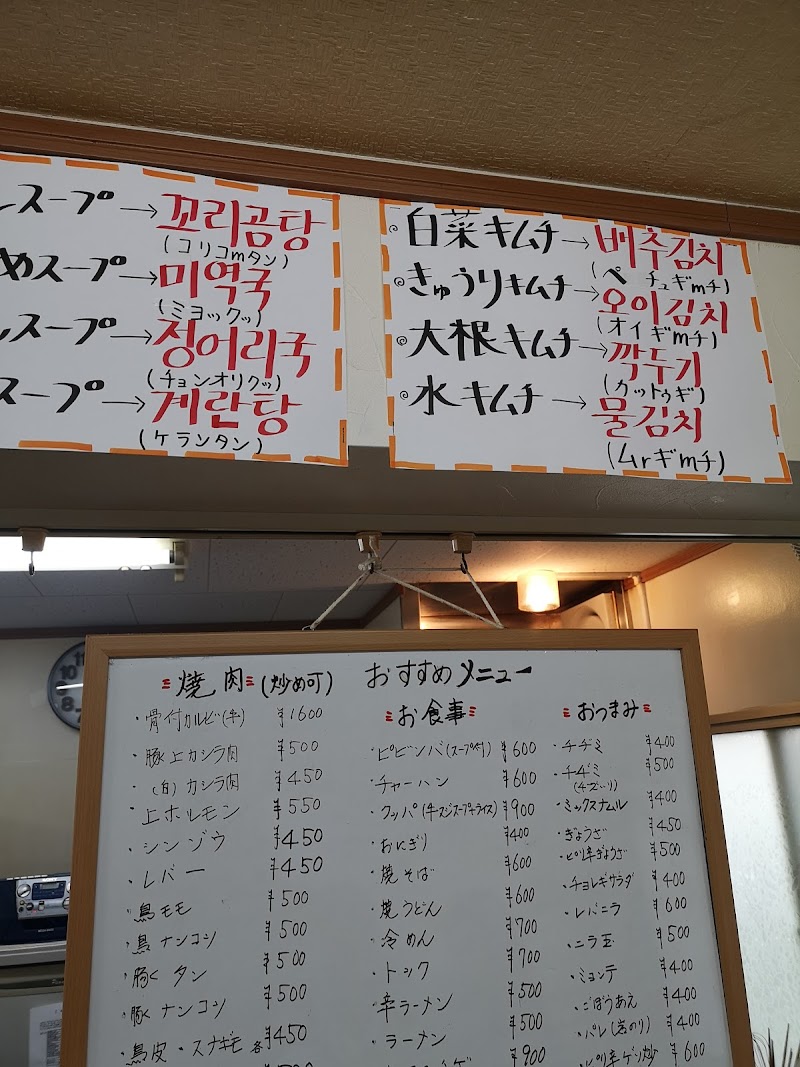 スープ→꼬리곰탕
(コリコmタン)
めスープ→미역국
(ミヨックッ)
スープ→정어리국
(チョンオリクッ)
スープ→계란탕
(ケランタン)
白菜キムチ→배추김치
(ペチュギmチ)
きゅうりキムチ→오이김치
(オイギmチ)
大根キムチ→깍두기
(カットゥギ)
水キムチ→물김치
(ムrギmチ)
おすすめメニュー
焼肉(炒め可)
・骨付カルビ(牛) ¥1600
・豚上カシラ肉 ¥500
・(白)カシラ肉 ¥450
・上ホルモン ¥550
・シンゾウ ¥450
・レバー ¥450
・鳥モモ ¥500
・鳥ナンコツ ¥500
・豚タン ¥500
・豚ナンコツ ¥500
・鳥皮・スナギモ各¥450
お食事
・ピビンバ(スープ付) ¥600
・チャーハン ¥600
・クッパ(牛スジスープ+ライス) ¥900
・おにぎり ¥400
・焼そば ¥600
・焼うどん ¥600
・冷めん ¥700
・トック ¥700
・辛ラーメン ¥500
・ラーメン ¥500
¥900
おつまみ
・チヂミ ¥400
・チヂミ ¥500
・ミックスナムル ¥400
・ぎょうざ ¥450
・ピリ辛ぎょうざ ¥500
・チョレギサラダ ¥400
・レバニラ ¥600
・ニラ玉 ¥500
・ミョンテ ¥400
・ごぼうあえ ¥400
・パレ(岩のり) ¥400
・ピリ辛ゲソ炒 ¥600
10
9
8